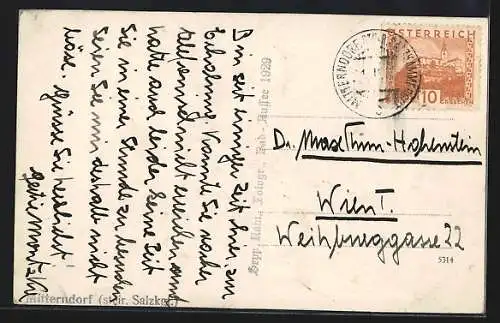 Bin seit einiger Zeit hier, zur
Erholung. Konnte Sie vorher
telefonisch nicht erreichen und
hatte auch leider keine Zeit
Sie in einer Stunde zu
Seien Sie mir deshalb nicht
böse. Grüsse Sie herzlichst!
Mitterndorf (steir. Salzkgt.)
Sepp Rohm Fotogr. Bad-Aussee 1929
ÖSTERREICH
10
GROSCHEN
MITTERNDORF
Dr. Max Thun-Hohenstein
Wien I.
Weihburggasse 22
5314